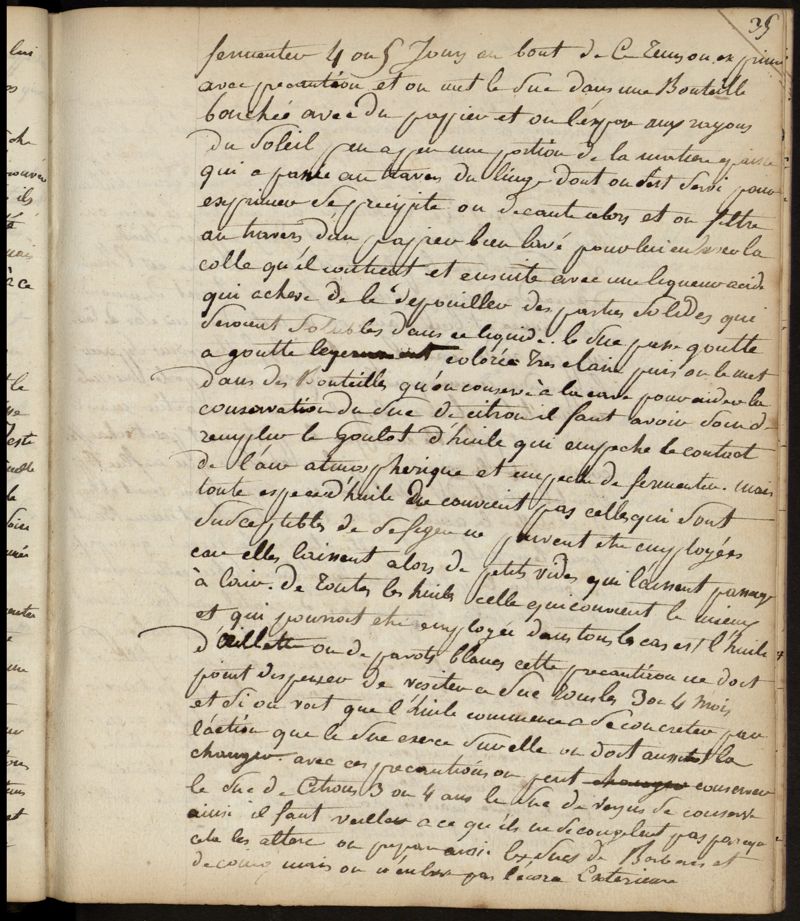 35
fermenter 4 ou 5 Jours au bout de Ce tems on exprime
avec precaution et on met le Suc dans une Bouteille
bouchée avec du papier et on l'expose aux rayons
du Soleil peu a peu une portion de la matiere epaisse
qui a passé au travers du linge dont on s'est servi pour
exprimer se precipite on decante alors et on filtre
au travers d'un papier bien lavé pour lui enlever la
colle qu'il contient et ensuite avec une liqueur acide
qui acheve de le depouiller des parties Solides qui
Seroient Solubles dans ce liquide. le Suc passe goutte
a goutte legerement colorée tres claire puis on le met
dans des Bouteilles qu'on conserve à la cave pour aider la
conservation du Suc de citron il faut avoir Soin d
remplir le Goulot d'huile qui empeche le contact
de l'air atmospherique et empeche de fermenter. mais
toute espece d'huile ne convient pas celles qui Sont
Susceptibles de se figer ne peuvent etre employées
car elles laissent alors de petits vides qui laissent passage
à l'air. de toutes les huiles celle qui convient le mieux
et qui pourroit etre employée dans tous les cas est l'huile
d'œillette ou de pavots blancs cette precaution ne doit
point dispenser de visiter ce Suc tous les 3 ou 4 Mois
et Si on voit que l'huile commence a Se concreter par
l'action que le Suc exerce Sur elle on doit aussitot la
changer. avec ces precautions on peut changer conserver
le Suc de Citrons 3 ou 4 ans le Suc de verjus Se conserve
ainsi il faut veiller a ce qu'ils ne Se congelent pas parceque
cela les altere on prepare ainsi les Sucs de Berberis et
de coing mais on n'enleve pas l'écorce Exterieure